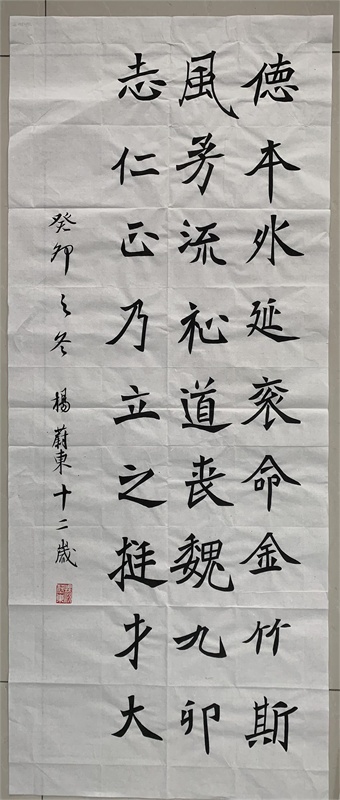 徳本外延衮命金竹斯
風芳流道丧魏九卯
志仁正乃立之挺才大
癸卯之冬 楊蔚東十二歲